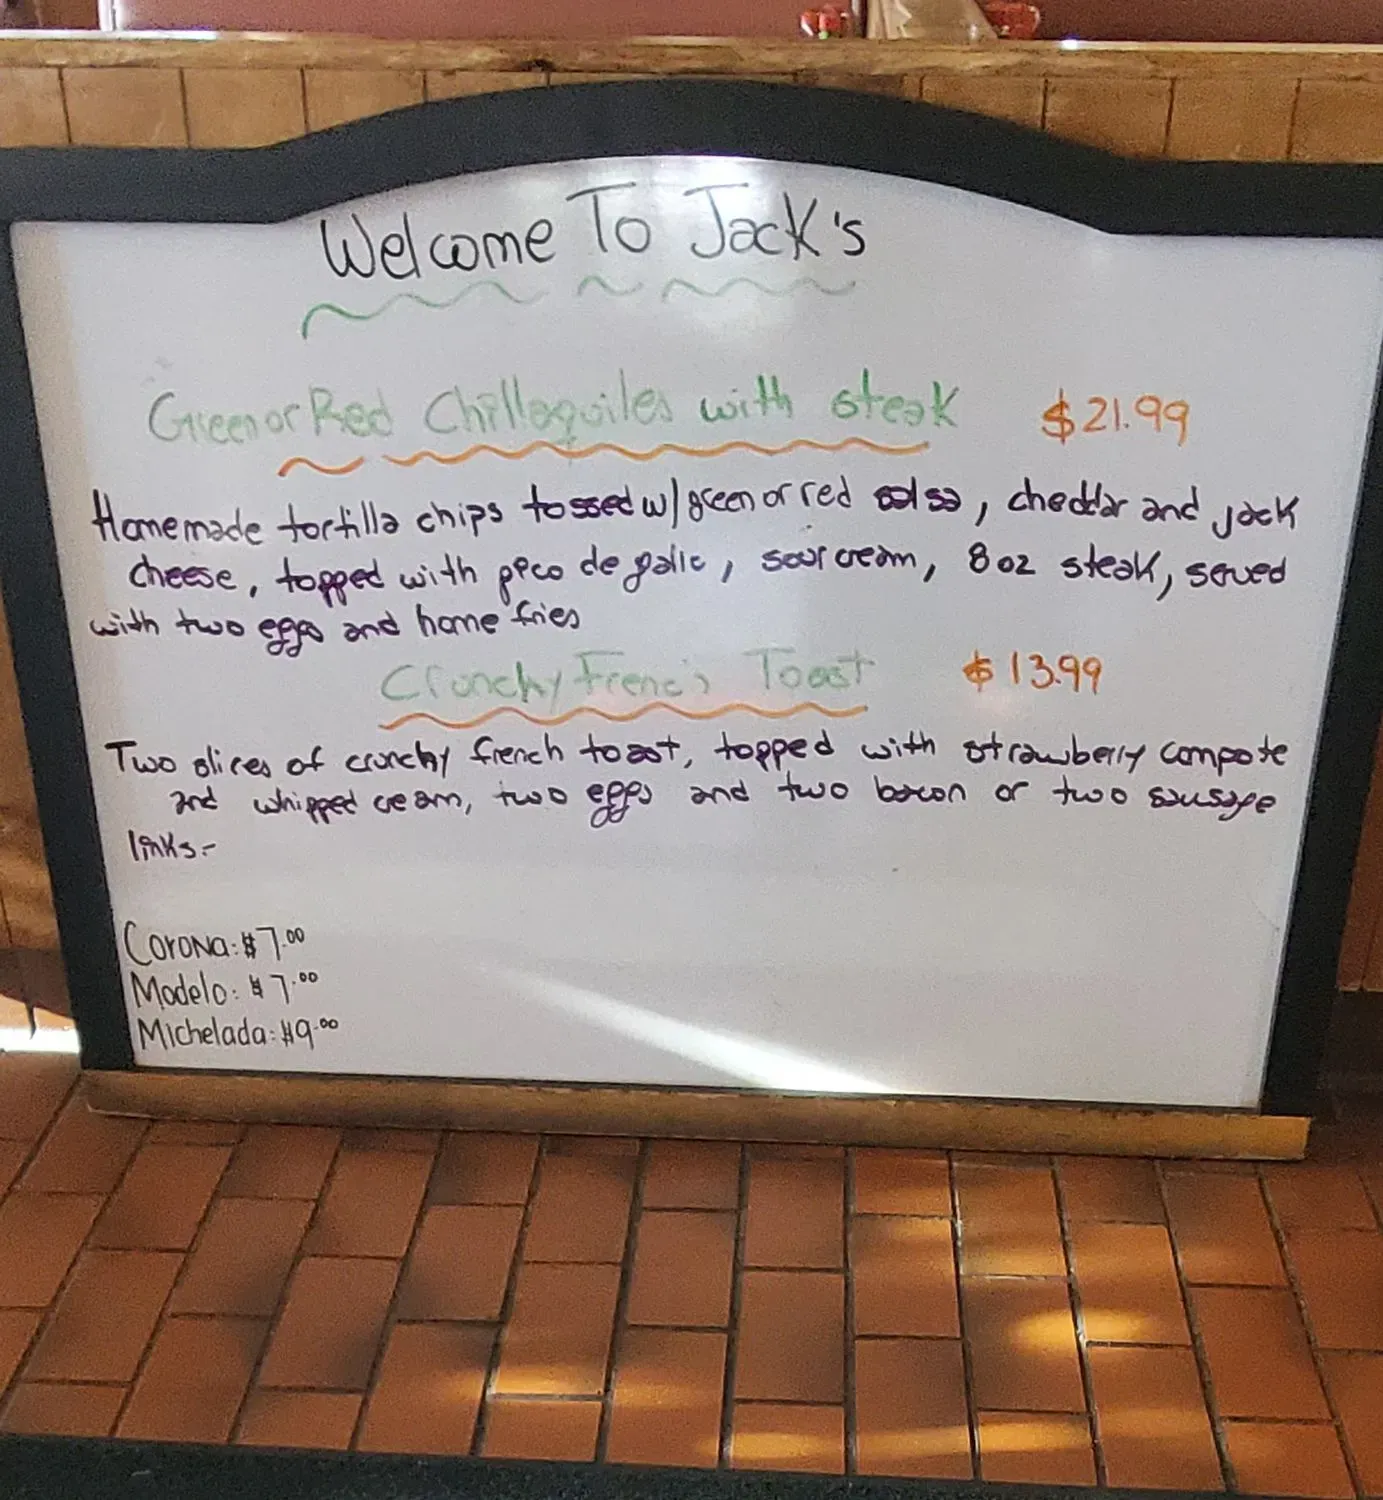 Welcome To Jack's
Green or Red Chillaquiles with steak $21.99
Homemade tortilla chips tossed w/ green or red salsa, cheddar and jack
cheese, topped with pico de gallo, sour cream, 8 oz steak, served
with two eggs and home fries
Crunchy French Toast $13.99
Two slices of crunchy french toast, topped with strawberry compote
and whipped cream, two eggs and two bacon or two sausage
links.
Corona: $7.00
Modelo: $7.00
Michelada: $9.00